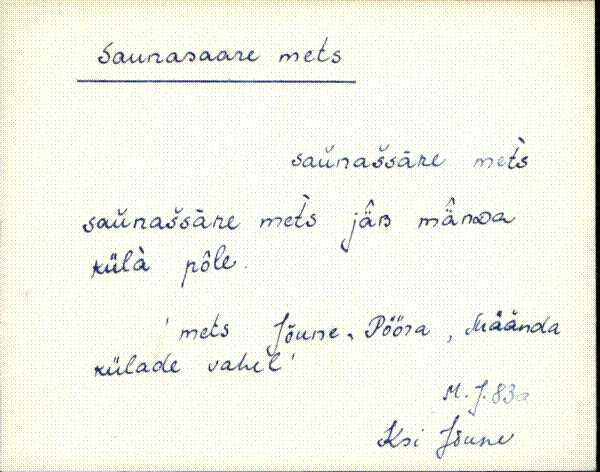 Saunasaare mets
saŭnaššāre met̀s
saŭnaššāre met̀s jä̂ʙ mä̂nᴅa
külà pô̭le.
'mets Jõune, Pööra, Mäända
külade vahel'
M.J. 83a
Ksi Jõune